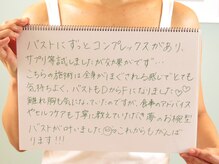 バストにずっとコンプレックスがあり、
サプリ等試しましたが効果がです…
こちらの施術は全身がほぐされる感じでとても
気持ちよく、バストもDからFになりました♡
離れ胸も気になっていたのですが、食事のアドバイス
やセルフケアも丁寧に教えていただき夢のお椀型
バストが叶いました これからもがんば
ります!!!